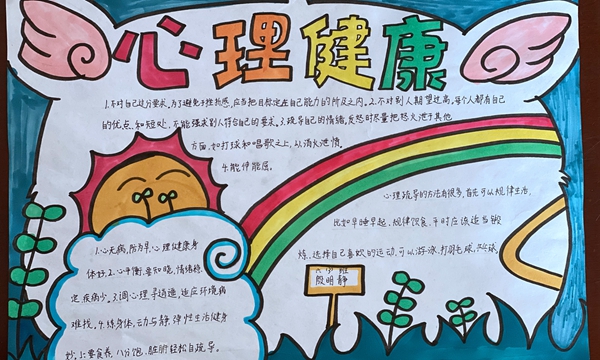 心理健康
1.不对自己过分要求,为了避免于挫折感,应当把目标定在自己能力的所及之内。2.不对别人期望过高,每个人都有自己
的优点,和短处,不能强求别人符合自己的要求。3.疏导自己的情绪,反怒时尽量把怒火泄于其他
方面,如打球和唱歌之上,以消火泄愤。
4.能伸能屈。
心理疏导的方法有很多,首先可以规律生活,
比如早睡早起、规律饮食、平时应该适当锻
炼、选择自己喜欢的运动,可以游泳、打羽毛球、
1.心无病,防为早,心理健康身
体好。2.心平衡,要知晓,情绪稳
定疾病少。3.调心理寻适逸,适应环境病
难找。4.练身体,动与静,弹性生活健身
妙。5.要食养,八分饱,脏腑轻松自疏导。
殷明静